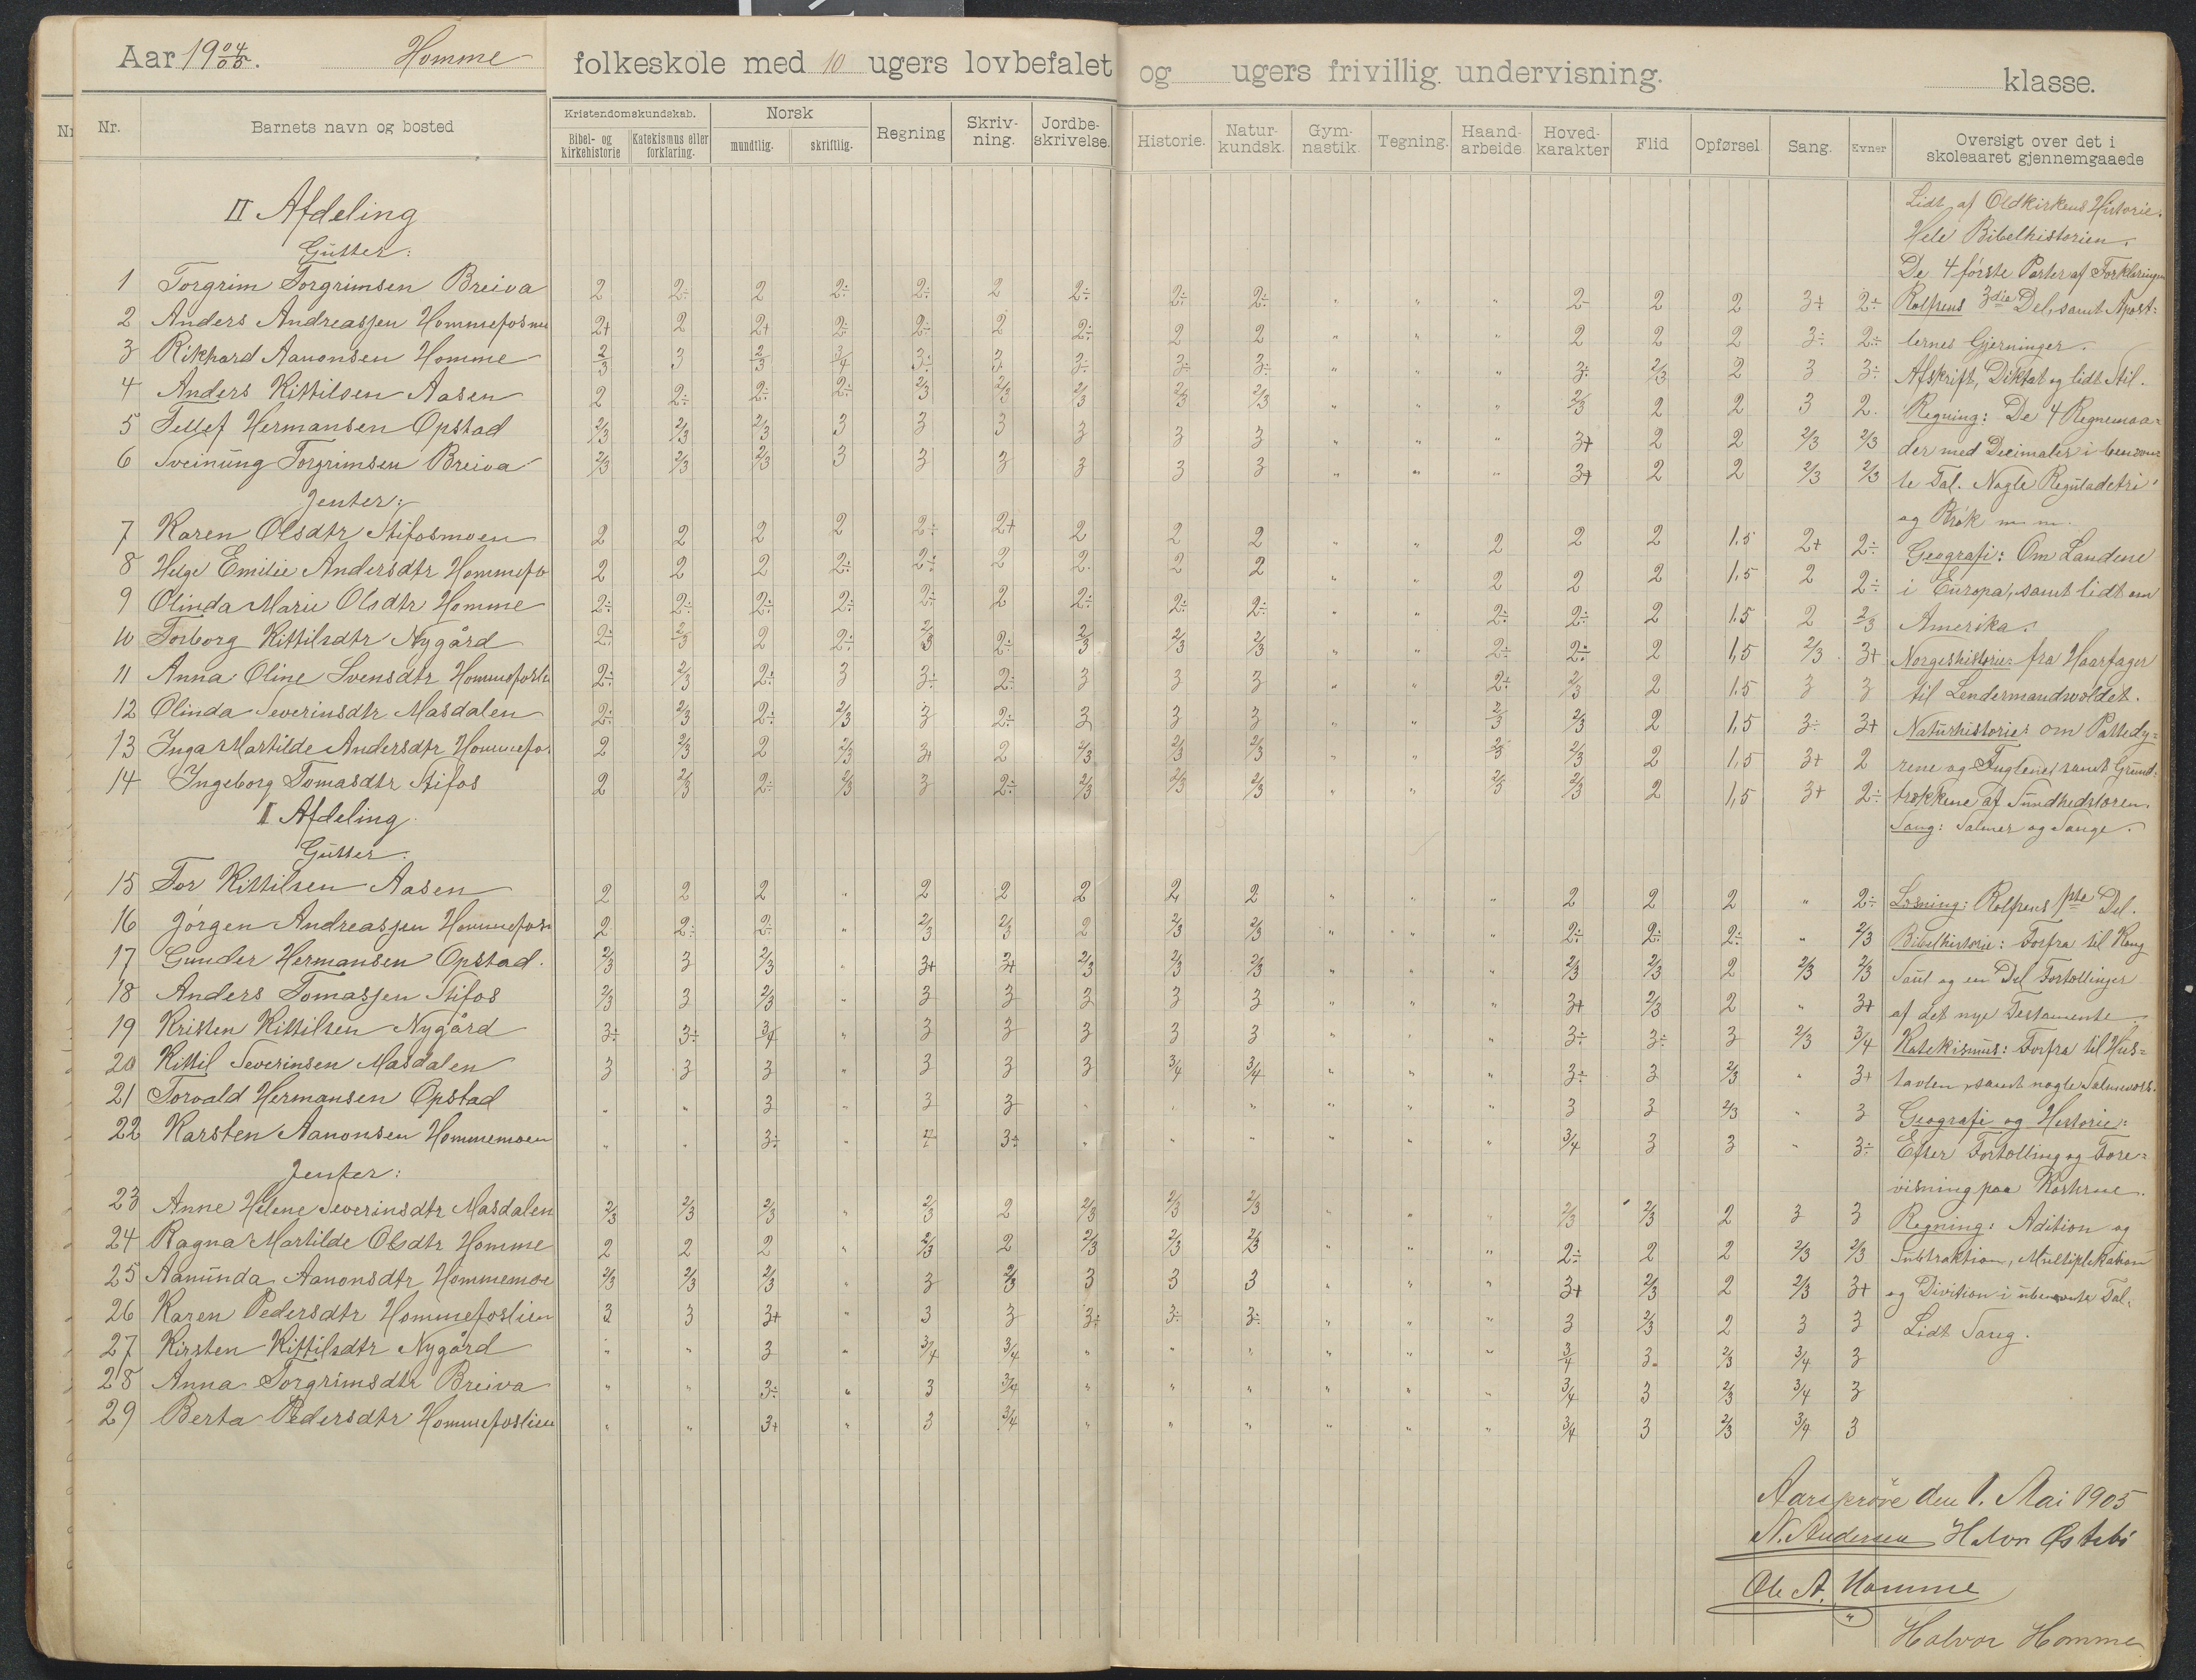 Aar 19 04/05. Homme folkeskole med 10 ugers lovbefalet og ugers frivillig undervisning. klasse.
Nr. Barnets navn og bosted Kristendomskundskab. Bibel- og Kirkehistorie Katekismus eller forklaring. Norsk mundtlig. skriftlig. Regning Skriv-ning. Jordbe-skrivelse. Historie. Natur-kundsk. Gym-nastik. Tegning. Haand-arbeide Hoved-karakter Flid Opførsel Sang. Evner Oversigt over det i skoleaaret gjennemgaaede
II Afdeling
Gutter:
1 Torgrim Torgrimsen Breiva 2 2÷ 2 2÷ 2÷ 2 2÷ 2÷ 2÷ " " " 2- 2 2 3+ 2÷
2 Anders Andreassen Hommefosmo 2+ 2 2+ 2÷ 2÷ 2 2÷ 2 2 " " " 2 2 2 3÷ 2÷
3 Rikhard Aanonsen Homme 2/3 3 2/3 3/4 3÷ 3 3÷ 3÷ 3÷ " " " 3÷ 2/3 2 3 3÷
4 Anders Kittilsen Aasen 2 2÷ 2÷ 2÷ 2/3 2/3 2/3 2/3 2/3 " " " 2/3 2 2 3 2
5 Tellef Hermansen Opstad 2/3 2/3 2/3 3 3 3 3 3 3 " " " 3+ 2 2 2/3 2/3
6 Sveinung Torgrimsen Breiva 2/3 2/3 2/3 3 3 3 3 3 3 " " " 3+ 2 2 2/3 2/3
Jenter:
7 Karen Olsdtr Stifosmoen 2 2 2 2 2÷ 2+ 2 2 2 " " 2 2 2 1.5 2+ 2÷
8 Helge Emilie Andersdtr Hommefo 2 2 2 2÷ 2÷ 2 2 2 2 " " 2 2 2 1.5 2 2÷
9 Olinda Marie Olsdtr Homme 2÷ 2÷ 2÷ 2÷ 2÷ 2 2÷ 2÷ 2÷ " " 2÷ 2÷ 2 1.5 2 2/3
10 Torborg Kittilsdtr Nygård 2÷ 2/3 2 2÷ 2/3 2÷ 2/3 2/3 2/3 " " 2÷ 2÷ 2 1,5 2/3 3+
11 Anna Oline Svensdtr Hommefosli 2÷ 2/3 2÷ 3 3÷ 2÷ 3 3 3 " " 2÷ 2/3 2 1.5 3 3
12 Olinda Severinsdtr Masdalen 2÷ 2/3 2÷ 2/3 3 2÷ 3 3 3 " " 2/3 2/3 2 1,5 3÷ 3+
13 Inga Martilde Andersdtr Hommefo 2 2/3 2 2/3 3+ 2 2/3 2/3 2/3 " " 2/3 2/3 2 1,5 3+ 2
14 Ingeborg Tomasdtr Stifos 2 2/3 2÷ 2/3 3 2÷ 2/3 2/3 2/3 " " 2/3 2/3 2 1,5 3+ 2÷
I Afdeling
Gutter:
15 Tor Kittilsen Aasen 2 2 2 " 2 2 2 2 2 " " " 2 2 2 " 2÷
16 Jørgen Andreassen Hommefosm 2 2÷ 2÷ " 2/3 2/3 2 2/3 2/3 " " " 2÷ 2÷ 2÷ " 2/3
17 Gunder Hermansen Opstad. 2/3 3 2/3 " 3+ 3+ 2/3 2/3 2/3 " " " 2/3 2/3 2 2/3 2/3
18 Anders Tomassen Stifos 2/3 3 2/3 " 3 3 3 3 3 " " " 3+ 2/3 2 " 3+
19 Kristen Kittilsen Nygård 3÷ 3÷ 3/4 " 3 3 3 3 3 " " " 3÷ 3÷ 3 2/3 3/4
20 Kittil Severinsen Masdalen 3 3 3 " 3 3 3 3/4 3/4 " " " 3÷ 3 2/3 " 3+
21 Torvald Hermansen Opstad " " 3 " 3 3 " " " " " " 3 3 2/3 " 3
22 Karsten Aanonsen Hommemoen " " 3÷ " 3÷ " " " " " " 3/4 3 3 " 3÷
Jenter:
23 Anne Helene Severinsdtr Masdalen 2/3 2/3 2/3 " 2/3 2 2/3 2/3 2/3 " " " 2/3 2/3 2 3 3
24 Ragna Martilde Olsdtr Homme 2 2 2 " 2/3 2 2/3 2/3 2/3 " " " 2÷ 2 2 2/3 2/3
25 Aanunda Aanonsdtr Hommemoe 2/3 2/3 2/3 " 3 2/3 3 3 3 " " " 3+ 2/3 2 2/3 3+
26 Karen Pedersdtr Hommefoslien 3 3 3+ " 3 3 3÷ 3÷ 3÷ " " " 3 2/3 2 3 3
27 Kirsten Kittilsdtr Nygård " " 3 " 3/4 3/4 " " " " " " 3/4 3 2/3 3/4 3
28 Anna Torgrimsdtr Breiva " " 3÷ " 3 3/4 " " " " " " 3/4 3 2/3 3/4 3
29 Berta Pedersdtr Hommefoslien " " 3+ " 3 3/4 " " " " " " 3/4 3 2/3 3/4 3
Lidt af Oldkirkens Historie.
Hele Bibelhistorien.
De 4 første Parter af Forklaringen
Rolfsens 3die Del, samt Apost=
lernes Gjerninger.
Afskrift, Diktat og lidt Stil.
Regning: De 4 Regnemaa=
der med Decimaler i benævn
te Tal. Nogle Reguladetri
og Brøk m.m.
Geografi: Om Landene
i Europa, samt lidt om
Amerika.
Norgeshistorie: fra Haarfager
til Lendermandsvældet.
Naturhistorie: om Pattedy=
rene og Fuglene, samt Grund=
trækkene af Sundhedslæren.
Sang: Salmer og Sange.
Læsning: Rolfsens 1ste Del.
Bibelhistorie: Forfra til Kong
Saul og en Del Fortællinger
af det nye Testamente.
Katekismus: Forfra til Hus=
tavlen, samt nogle Salmevers.
Geografi og Historie:
Efter Fortælling og Fore=
visning paa Karterne.
Regning: Adition og
Subtraktion, Multiplikation
og Division i ubenævnte Tal.
Lidt Sang.
Aarsprøve den 1. Mai 1905
N. Andersen Halvor Østebø
Ole A. Homme
Halvor Homme